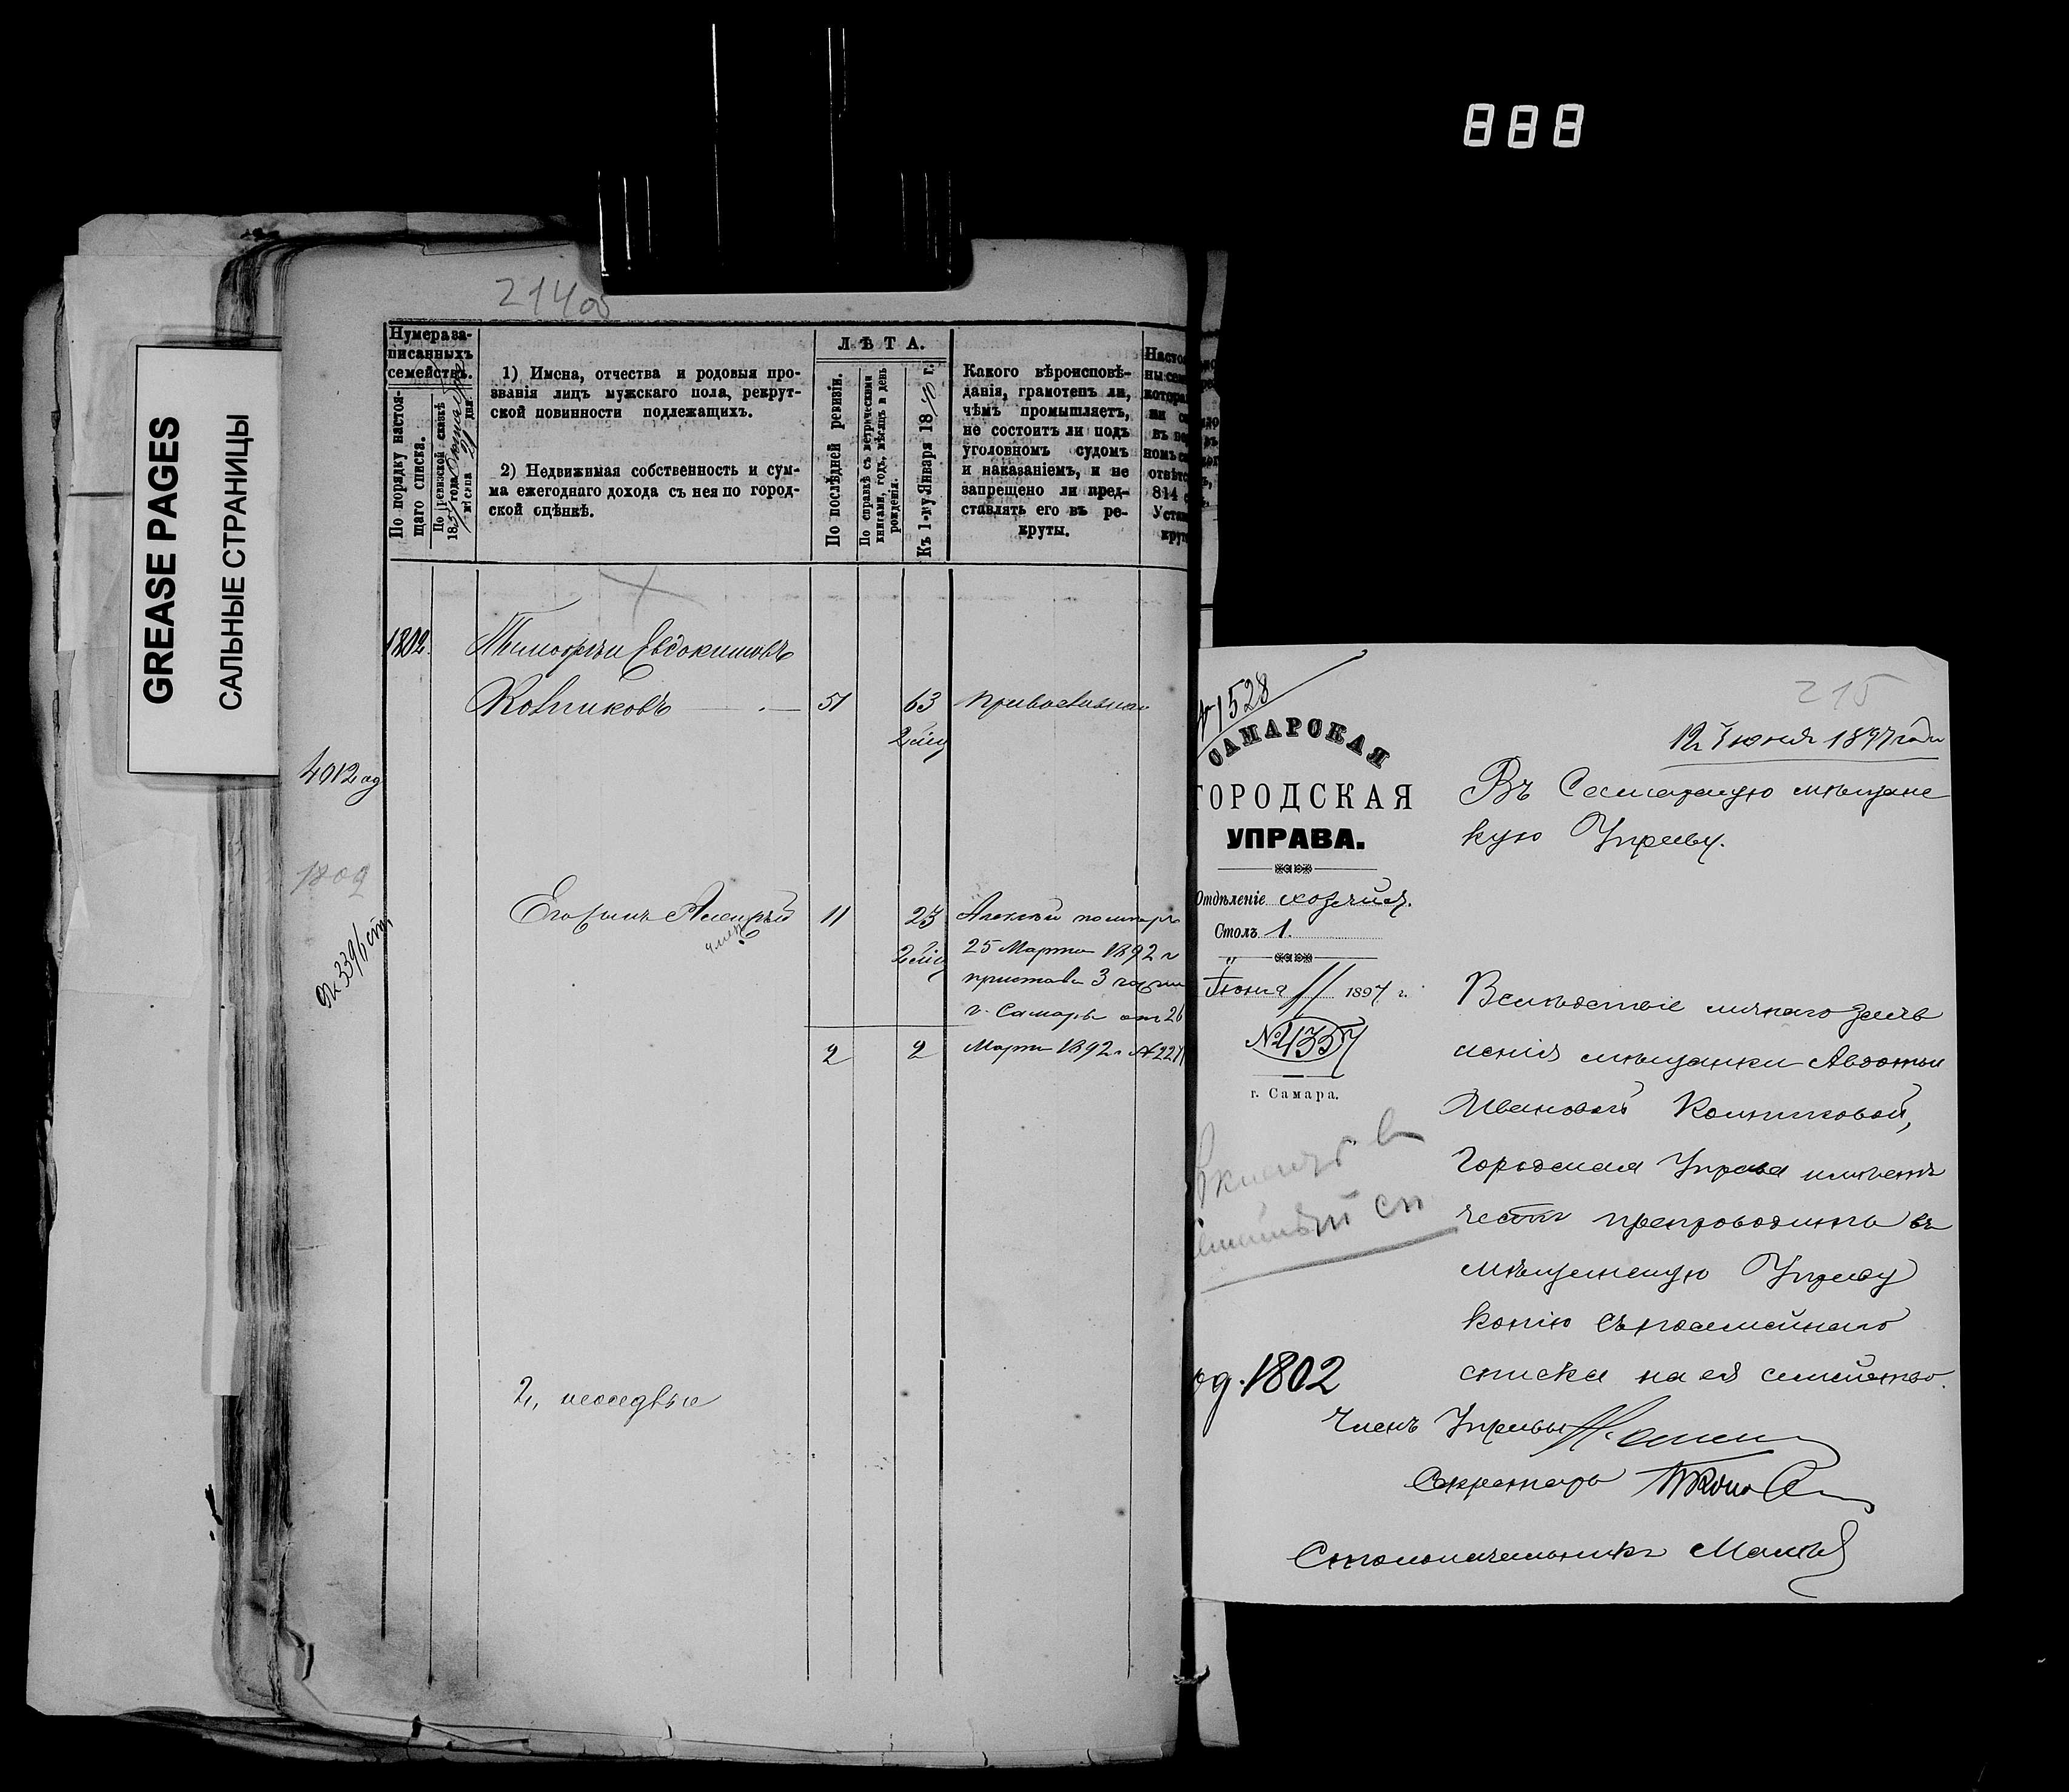 888
GREASE PAGES
САЛЬНЫЕ СТРАНИЦЫ
214об
Нумера за-
писанныхъ
семействъ.
По порядку настоя-
щаго списка.
По ревизской сказкѣ
18 года
мѣсяца дня
1) Имена, отчества и родовыя про-
званія лицъ мужскаго пола, рекрут-
ской повинности подлежащихъ.
2) Недвижимая собственность и сум-
ма ежегоднаго дохода съ нея по город-
ской оцѣнкѣ.
ЛѢТА.
По послѣдней ревизіи.
По справкѣ съ метрическими
книгами, годъ, мѣсяцъ и день
рожденія.
Къ 1-му Января 1870 г.
Какого вѣроисповѣ-
данія, грамотенъ ли,
чѣмъ промышляетъ,
не состоитъ ли подъ
уголовномъ судомъ
и наказаніемъ, и не
запрещено ли пред-
ставлять его въ ре-
круты.
1802. Тимофѣй Евдокимовъ
51 63
4012
1802
Его сынъ Алексѣй 11 23 Алексѣй
умеръ
25 Марта 1892 г
пристава 3 части
г. Самары от 26
2 2 Марта 1892 г №
2,
1528
215
12 Іюня 1897 года
САМАРСКАЯ
ГОРОДСКАЯ
УПРАВА.
Отдѣленіе хозяйст.
Столъ 1.
Іюня 11 1897 г.
№ 4357
г. Самара.
Въ Самарскую мѣщанс
кую Управу.
Вслѣдствіе личнаго заяв
ленія мѣщанки Авдотьи
Ивановой Котиковой,
Городская Управа имѣетъ
честь препроводить въ
мѣщанскую Управу
копію съ посемейнаго
списка на ея семейство.
1802
Членъ Управы
Секретарь
Столоначальникъ